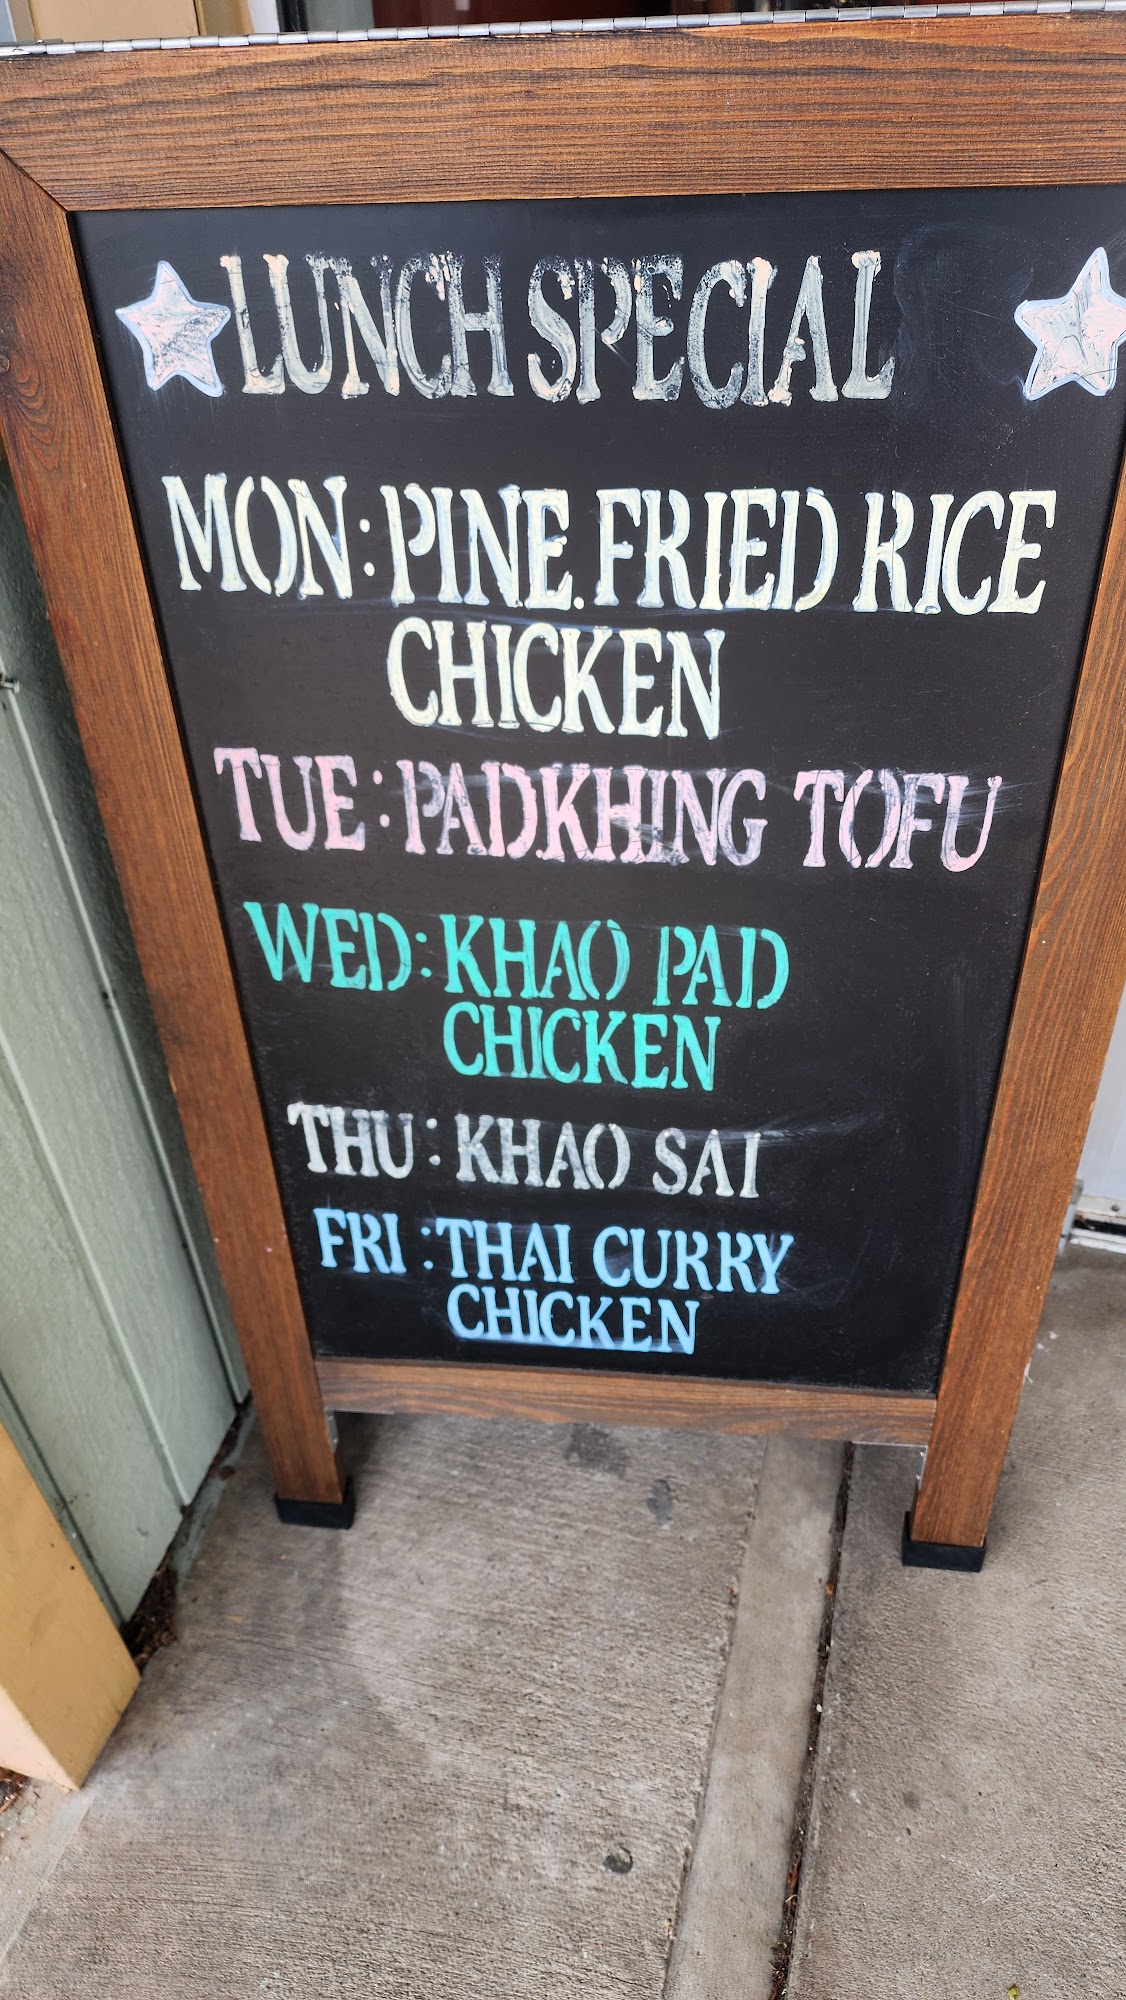 LUNCH SPECIAL
MON: PINE. FRIED RICE
CHICKEN
TUE: PAD.KHING TOFU
WED: KHAO PAD
CHICKEN
THU: KHAO SAI
FRI: THAI CURRY
CHICKEN